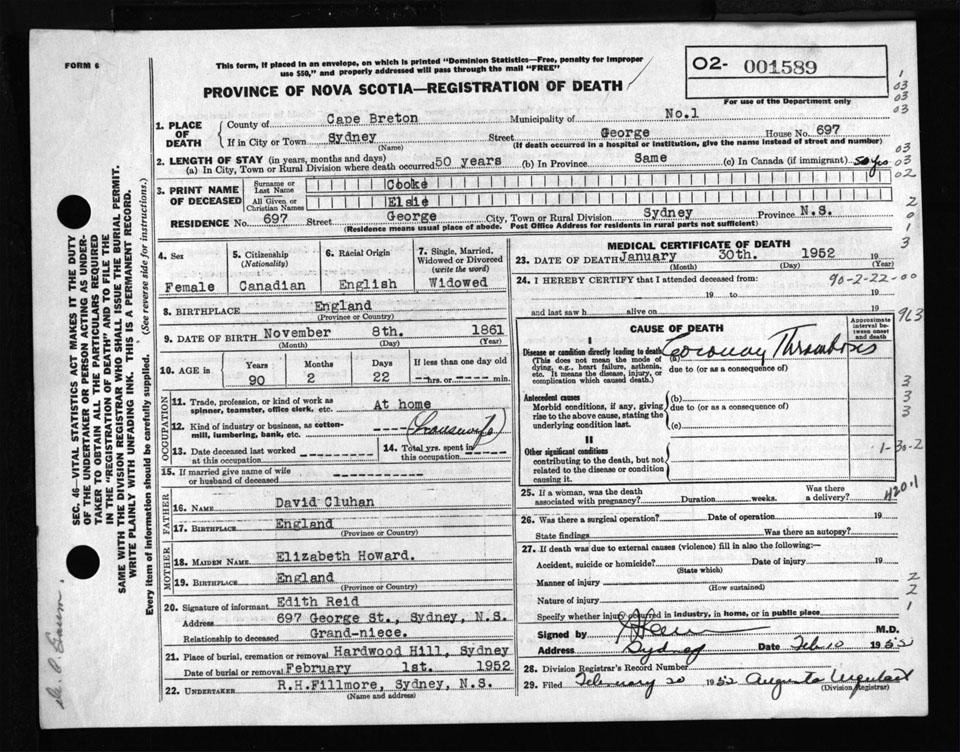 FORM 6
This form, if placed in an envelope, on which is printed "Dominion Statistics—Free, penalty for improper
use $50," and properly addressed will pass through the mail "FREE"
PROVINCE OF NOVA SCOTIA—REGISTRATION OF DEATH
O2- 001589
For use of the Department only
1. PLACE OF DEATH
County of Cape Breton Municipality of No.1
If in City or Town Sydney Street George House No. 697
(Name) (If death occurred in a hospital or institution, give the name instead of street and number)
2. LENGTH OF STAY (in years, months and days)
(a) In City, Town or Rural Division where death occurred 50 years (b) In Province Same (c) In Canada (if immigrant) 50 yrs
3. PRINT NAME OF DECEASED
Surname or Last Name Cooke
All Given or Christian Names Elsie
RESIDENCE No. 697 Street George City, Town or Rural Division Sydney Province N.S.
(Residence means usual place of abode. Post Office Address for residents in rural parts not sufficient)
4. Sex
Female
5. Citizenship
(Nationality)
Canadian
6. Racial Origin
English
7. Single, Married,
Widowed or Divorced
(write the word)
Widowed
8. BIRTHPLACE England
(Province or Country)
9. DATE OF BIRTH November 8th. 1861
(Month) (Day) (Year)
10. AGE in
Years Months Days If less than one day old
90 2 22 ---hrs. or ---- min.
OCCUPATION
11. Trade, profession, or kind of work as
spinner, teamster, office clerk, etc. At home
12. Kind of industry or business, as cotton-
mill, lumbering, bank, etc. ---- (housewife)
13. Date deceased last worked
at this occupation ------
14. Total yrs. spent in
this occupation -----
15. If married give name of wife
or husband of deceased ----------
FATHER
16. NAME David Cluhan
17. BIRTHPLACE England
(Province or Country)
MOTHER
18. MAIDEN NAME Elizabeth Howard.
19. BIRTHPLACE England
(Province or Country)
20. Signature of informant Edith Reid
Address 697 George St., Sydney, N.S.
Relationship to deceased Grand-niece.
21. Place of burial, cremation or removal Hardwood Hill, Sydney
Date of burial or removal February 1st. 1952
22. UNDERTAKER R.H.Fillmore, Sydney, N.S.
(Name and address)
MEDICAL CERTIFICATE OF DEATH
23. DATE OF DEATH January 30th. 1952 19
(Month) (Day) (Year)
24. I HEREBY CERTIFY that I attended deceased from: 90-2-22-00
19 to 19
and last saw h alive on 19
CAUSE OF DEATH
Approximate
interval be-
tween onset
and death
I
Disease or condition directly leading to death Coronary Thrombosis
(This does not mean the mode of
dying, e.g., heart failure, asthenia,
etc. It means the disease, injury, or
complication which caused death.)
due to (or as a consequence of)
Antecedent causes
Morbid conditions, if any, giving
rise to the above cause, stating the
underlying condition last.
(b)
due to (or as a consequence of)
(c)
II
Other significant conditions
contributing to the death, but not
related to the disease or condition
causing it.
25. If a woman, was the death
associated with pregnancy? Duration weeks. Was there
a delivery?
26. Was there a surgical operation? Date of operation 19
State findings Was there an autopsy?
27. If death was due to external causes (violence) fill in also the following:
Accident, suicide or homicide? Date of injury 19
(State which)
Manner of injury
(How sustained)
Nature of injury
Specify whether injury occurred in industry, in home, or in public place
Signed by M.D.
Address Sydney Date Feb 10 1952
28. Division Registrar's Record Number
29. Filed February 20 1952 Augusta
(Division Registrar)
1
03
03
03
03
03
02
2
0
1
3
963
3
3
3
1-30-2
420.1
2
2
1
SEC. 46—VITAL STATISTICS ACT MAKES IT THE DUTY
OF THE UNDERTAKER OR PERSON ACTING AS UNDER-
TAKER TO OBTAIN ALL THE PARTICULARS REQUIRED
IN THE "REGISTRATION OF DEATH" AND TO FILE THE
SAME WITH THE DIVISION REGISTRAR WHO SHALL ISSUE THE BURIAL PERMIT.
WRITE PLAINLY WITH UNFADING INK. THIS IS A PERMANENT RECORD.
Every item of information should be carefully supplied. (See reverse side for instructions.)